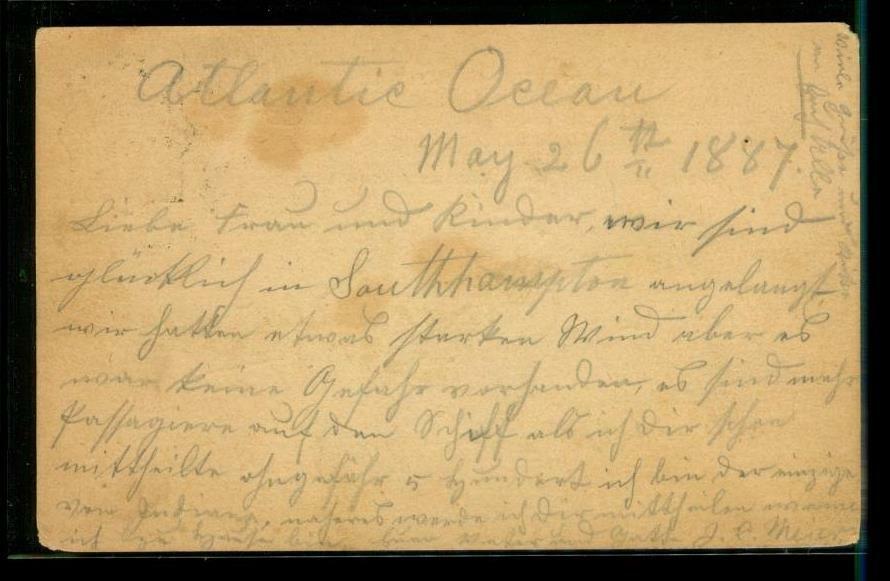 Atlantic Ocean
May 26th 1887.
Liebe Frau und Kinder, wir sind
glücklich in Southhampton angelangt
wir hatten etwas starken Wind aber es
war keine Gefahr vorhanden, es sind mehr
Passagiere auf den Schiff als ich Dir schon
mittheilte ohngefähr 5 Hundert ich bin der einzige
von Indiana, näheres werde ich Dir mittheilen wenn
ich zu Hause bin, Vater und Gatte J. C.
Viele Grüße und
an Alle